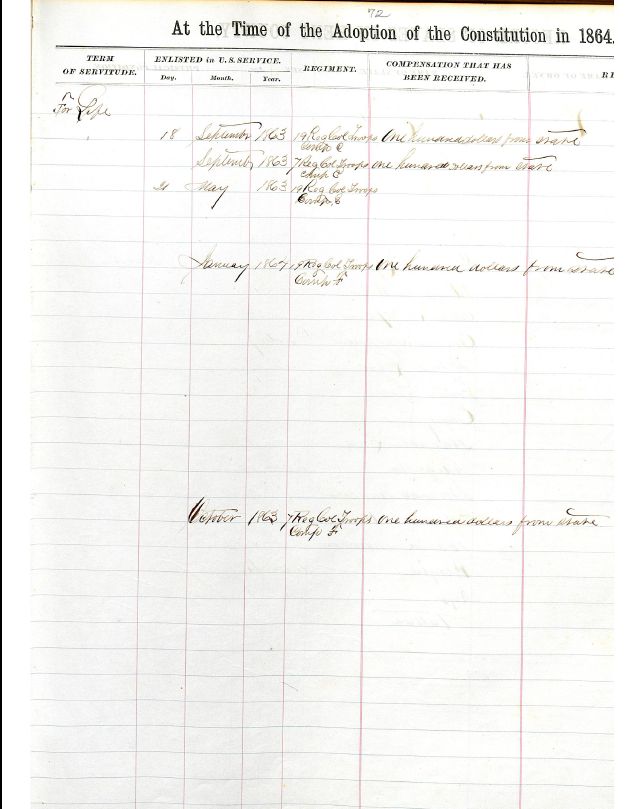 72
At the Time of the Adoption of the Constitution in 1864.
TERM OF SERVITUDE. ENLISTED in U.S. SERVICE. Day. Month. Year. REGIMENT. COMPENSATION THAT HAS BEEN RECEIVED.
For Life
18 September 1863 19 Reg Col Troops One hundred dollars from state
Comp C
September 1863 7 Reg Col Troops one hundred dollars from state
Comp C
May 1863 19 Reg Col Troops
Comp C
January 1864 19 Reg Col Troops One hundred dollars from state
Comp F
October 1863 7 Reg Col Troops One hundred dollars from state
Comp F